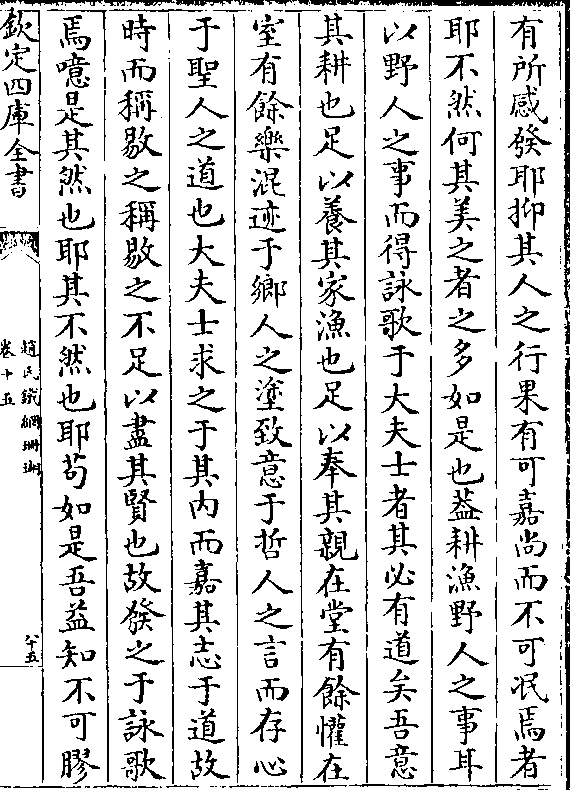 有所感發耶抑其人之行果有可嘉尚而不可泯焉者
耶不然何其美之者之多如是也葢耕漁野人之事耳
以野人之事而得詠歌于大夫士者其必有道矣吾意
其耕也足以養其家漁也足以奉其親在堂有餘懽在
室有餘樂混迹于鄉人之塗致意于哲人之言而存心
于聖人之道也大夫士求之于其内而嘉其志于道故
時而稱敭之稱敭之不足以盡其賢也故發之于詠歌
焉噫是其然也耶其不然也耶苟如是吾益知不可膠
欽定四庫全書
趙氏鐵網珊瑚
卷十五
八十五